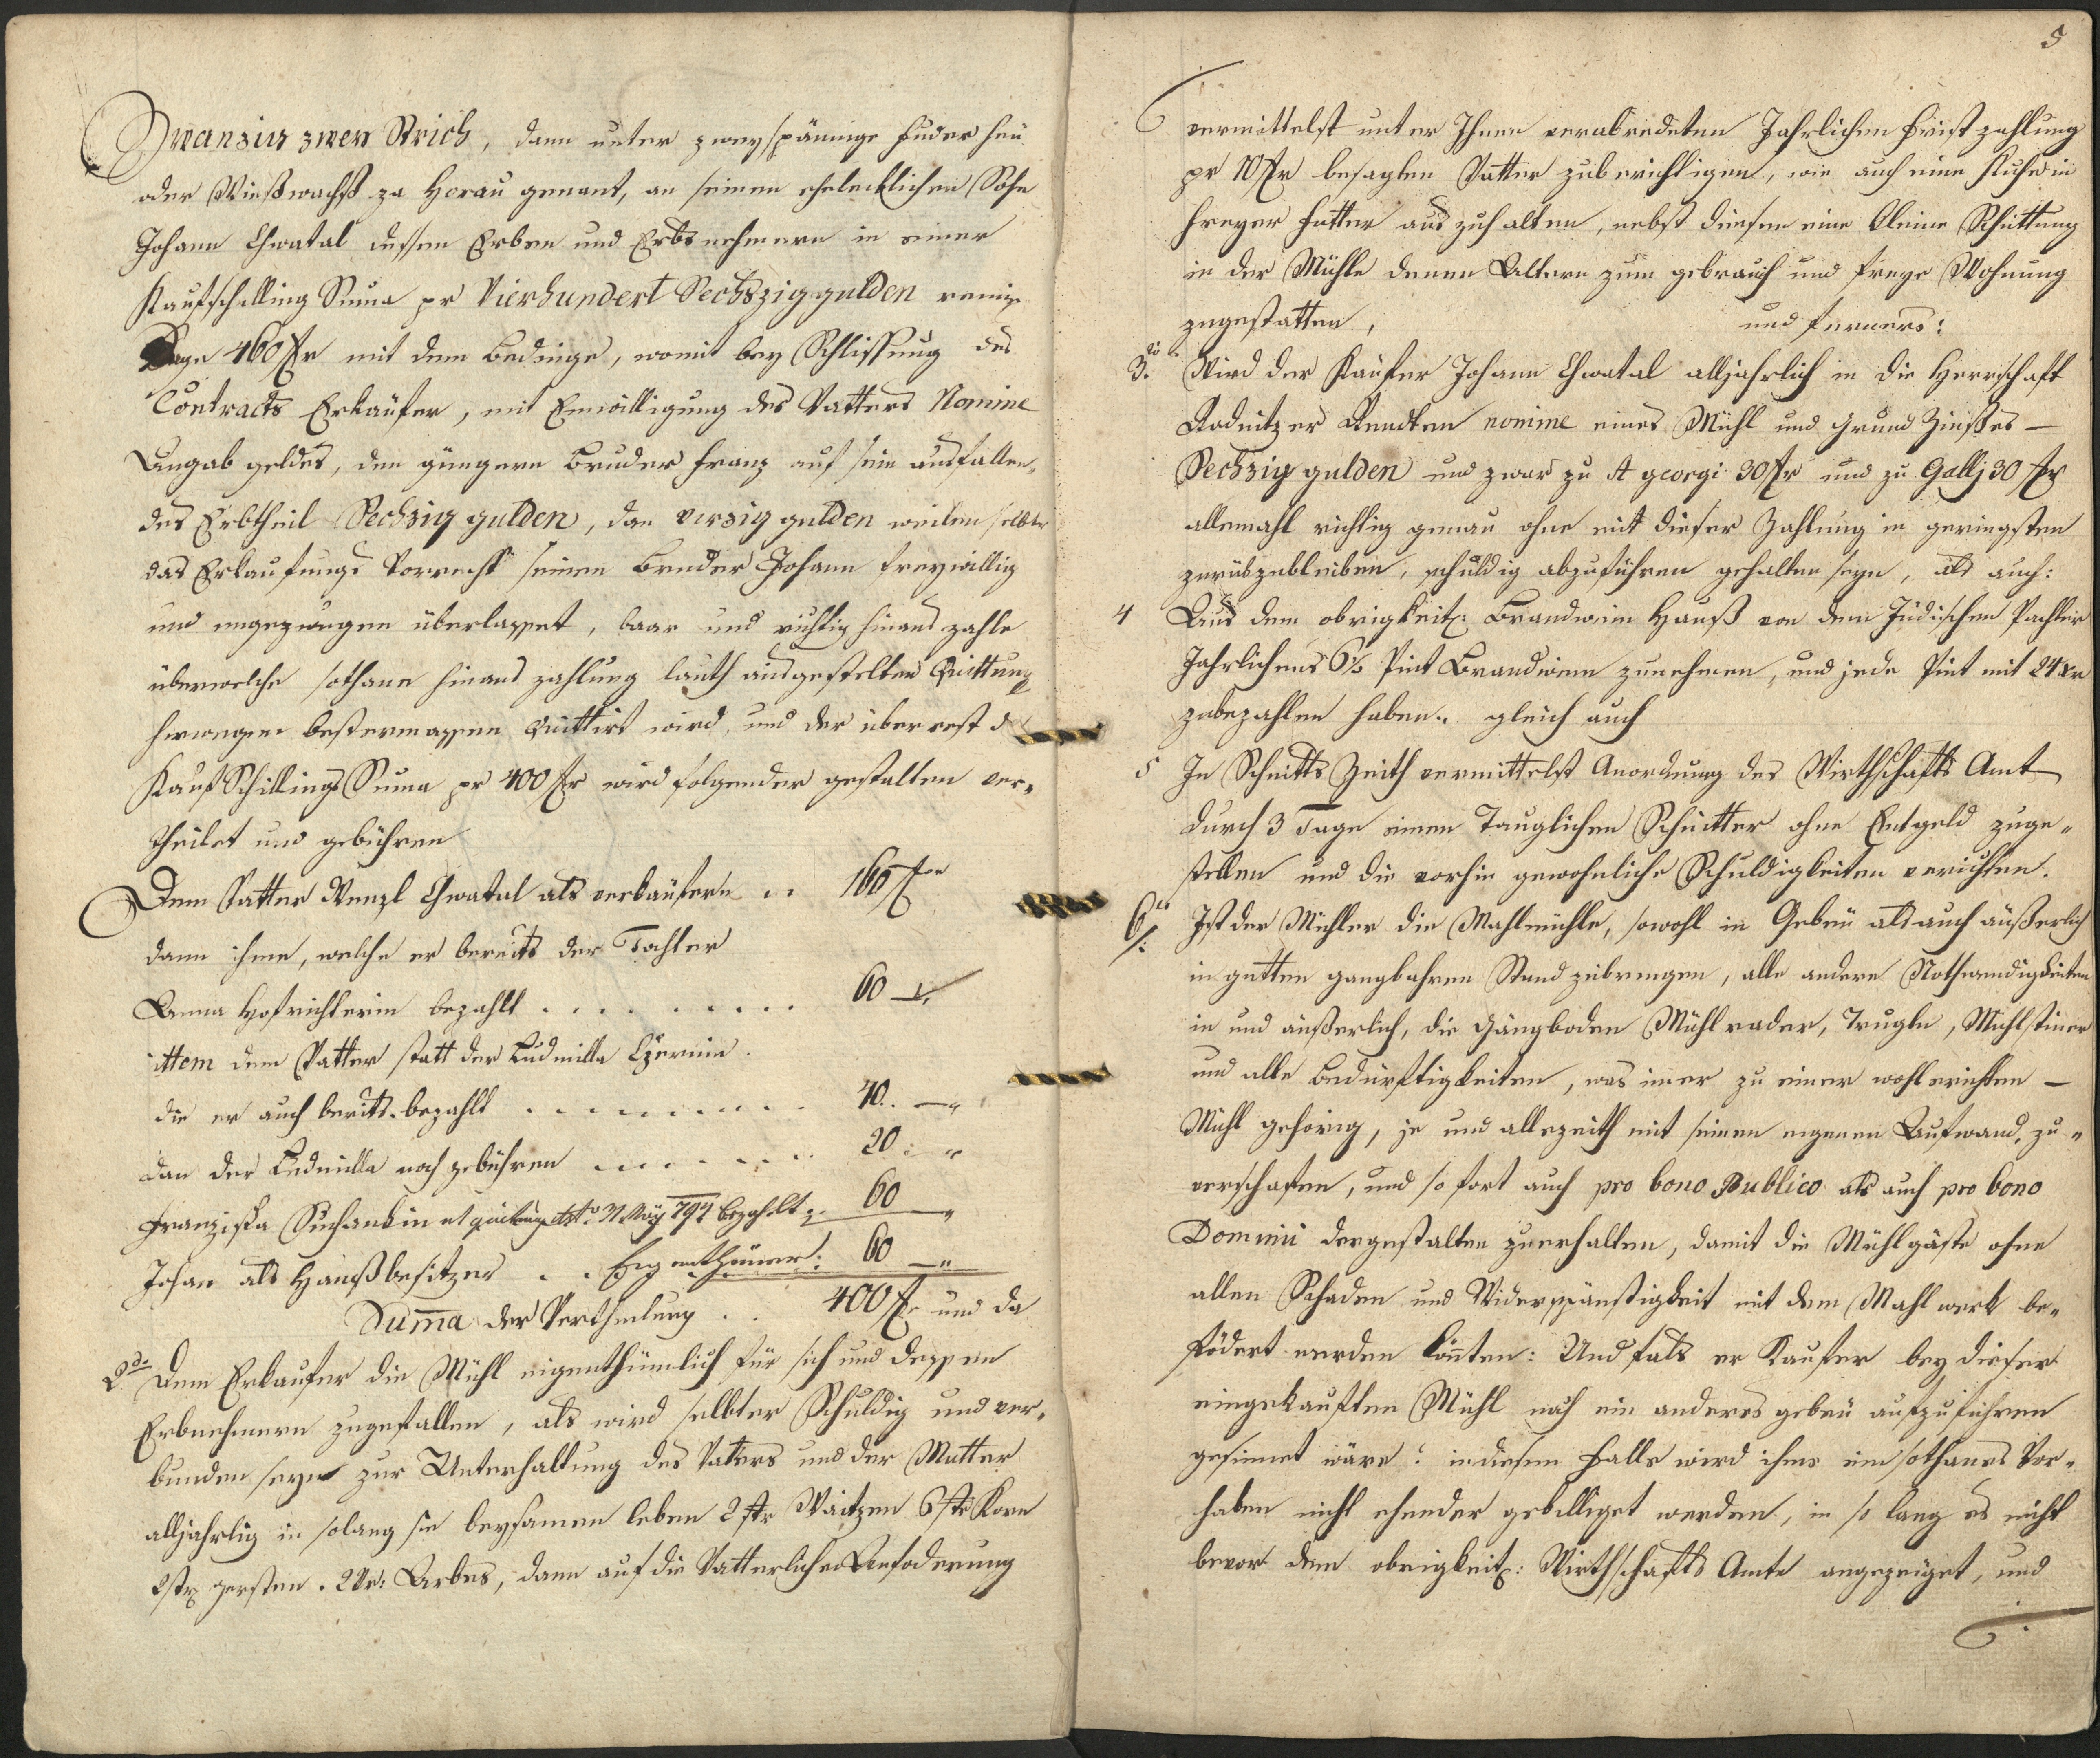 Zwanzig zwey Strich, dann unter zweyspännige Fuder Heu
oder Wießwachß za Horau genant, an seinen eheleiblichen Sohn
Johann Chwatal dessen Erben und Erbsnehmern in einer
Kaufschilling Suma pr Vierhundert Sechszig gulden
Sage 460 fr mit dem Bedinge, womit bey Schlissung des
Contracts Erkäufer, mit Einwilligung des Vatters Nomine
Angab geldes, den güngern Bruder Franz auf sein ausfallen„
des Erbtheil Sechzig gulden, dan virzig gulden weilen selbter
das Erkaufungs Vorrecht seinen Bruder Johann freywillig
und ungezwungen überlasset, baar und richtig hinaus zahle
überwelche sothane hinaus zahlung lauth ausgestelter Quittung
hierwegen bestermassen Quittirt wird, und der überrest d
Kauf Schillings Suma pr 400 fr wird folgender gestalten ver„
theilet und gebühren
Dem Vatter Wenzl Chwatal als verkäufern .. 160 fr
dann ihme, welche er bereits der Tochter
Anna Hofrichterin bezahlt . . . . . . . . 60 —
ittem dem Vatter statt der Ludmilla Czernin .
die er auch berits bezahlt . . . . . . . . . 40 .. — „
dan der Ludmilla noch gebühren . . . . . . . 20 : „
Franziska Suchankin at quittung dto 31 May 794 bezahlt : 60 „
Johan als Haußbesitzer . . Eigenthümer : 60 — „
Suma der Vertheilung . . 400 fr und da
2do Dem Erkaufer die Mühl eigenthümlich für sich und dessen
Erbnehmern zugefallen, als wird selbter Schuldig und ver„
bunden seyn zur Unterhaltung des Vaters und der Mutter
alljahrlig in solang sie beysamen leben 2 str Waitzen 6 str Korn
2 str gersten . 2 Vr: Arbes, dann auf die Vatterliche Anfoderung
5
vermittelst unter Ihnen verabredeten Jahrlichen Frist zahlung
pr 10 fr besagten Vatter zuberichtigen, wie auch eine Kuhe in
freyer Futter auszuhalten, nebst diesen eine kleine Schüttung
in der Mühle denen Altern zum gebrauch und freye Wohnung
zugestatten, und ferners:
3tio Wird der Käufer Johann Chwatal alljahrlich in die Herrschaft
Radnitzer Rendten nomine eines Mühl und Grund Zinßes —
Sechzig gulden und zwar zu St georgi 30 fr und zu Gallj 30 fr
allemahl richtig genau ohne mit dieser Zahlung in geringsten
zurükzubleiben, schuldig abzuführen gehalten seyn, als auch:
4 Aus dem obrigkeitl: Brandwein Hauß von dem Jüdischen Pachter
Jahrlichens 6½ Pint Brandwein zunehmen, und jede Pint mit 24 xr
zubezahlen haben. gleich auch
5 In Schnitts Zeith vermittelst Anordnung des Wirthschafts Amt
durch 3 Tage einen Tauglichen Schnitter ohne Entgeld zuge„
stellen und die vorhin gewohnliche Schuldigkeiten verichten.
6to Ist der Mühler die Mahlmühle, sowohl in Gebeu als auch äußerlich
in gutten gangbahren Stand zubringen, alle andere Nothwendigkeiten
in und äußerlich, die Gängboden Mühlrader, Trugln, Mühlsteiner
und alle Bedürftigkeiten, was imer zu einer wohl erichten —
Mühl gehörig, je und allezeith mit seinen eigenen Aufwand, zu„
verschafen, und so fort auch pro bono Publico als auch pro bono
Domini dergestalten zuerhalten, damit die Mühlgäste ohne
allen Schaden und Widerspänstigkeit mit dem Mahlwerk be„
födert werden könten: Und fals er Kaufer bey dieser
eingekauften Mühl noch ein anderes gebeu aufzuführen
gesinnet wäre: in diesem Falle wird ihme ein sothanes Vor„
haben nicht ehender gebilliget werden, in so lang es nicht
bevor dem obrigkeitl: Wirthschafts Amte angezeiget, und